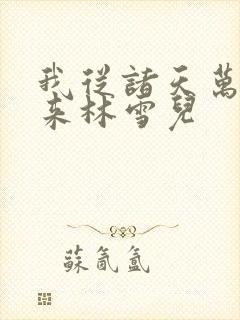 我從諸天萬
來林雪兒
蘇氤氳